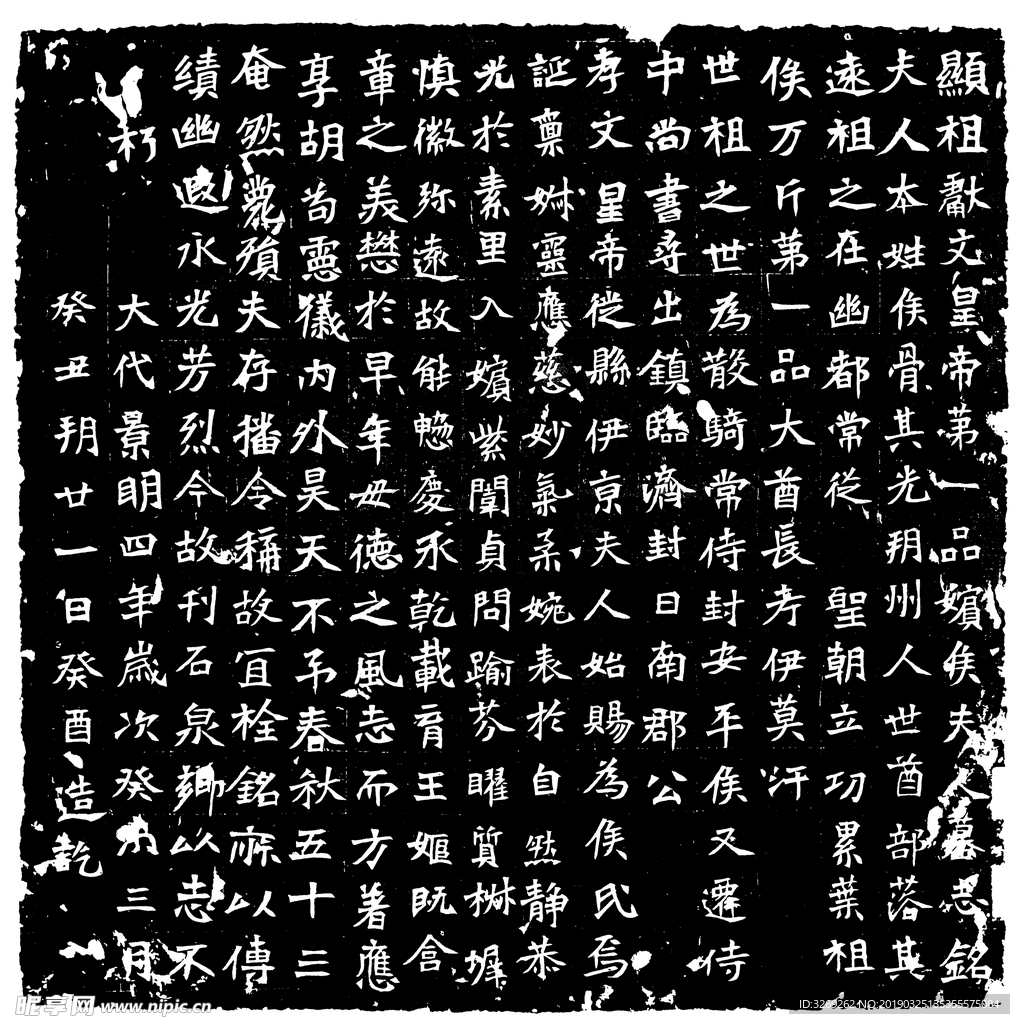 顯祖獻文皇帝第一品嬪侯夫人墓志銘
夫人本姓侯骨其光朔州人世酋部落其
遠祖之在幽都常從聖朝立功累葉祖
俟万斤第一品大酋長考伊莫汗
世祖之世為散騎常侍封安平侯又遷侍
中尚書尋出鎮臨濟封日南郡公
孝文皇帝徙縣伊京夫人始賜為侯氏焉
誕稟姝靈應慈妙氣柔婉表於自然靜恭
光於素里入嬪紫闈貞問踰芬曜質樹墀
慎徽弥遠故能慜慶承乾載育王姬既含
章之美懋於早年毋德之風志而方著應
享胡耇靈儀内外昊天不弔春秋五十三
奄然薨殞夫存播令稱故宜栓銘寐以傳
績幽遐永光芳烈今故刊石泉鄉以志不
朽大代景明四年歲次癸未三月
癸丑朔廿一日癸酉造訖
昵享网 www.nipic.cn
ID:3269262 NO:20190325135355575084